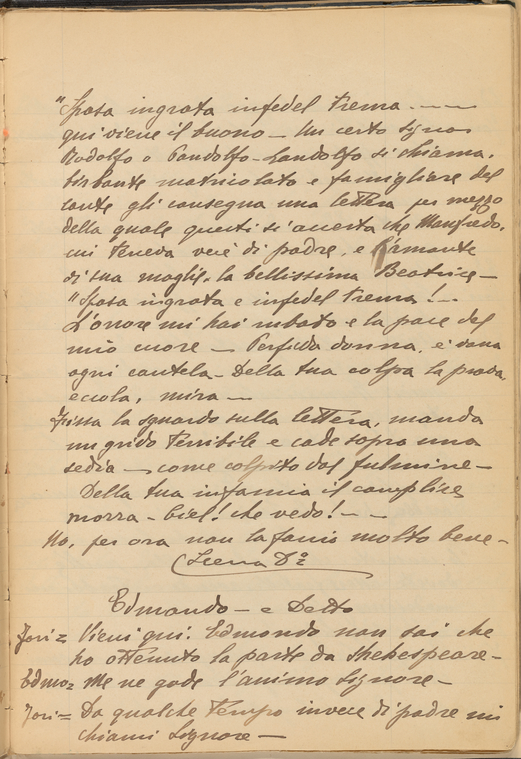 "Sposa ingrata infedel trema . — —
qui viene il buono — Un certo signor
Rodolfo o Pandolfo — Landolfo si chiama.
birbante matricolato e famigliare del
conte gli consegna una lettera per mezzo
della quale questi s'accerta che Manfredo.
mi teneva vece di padre, e l'amante
di sua moglie. la bellissima Beatrice —
"Sposa ingrata e infedel trema! —
L'onore mi hai rubato e la pace del
mio cuore — Perfida donna. è vana
ogni cautela — Della tua colpa la prova
eccola, mira —
Fissa lo sguardo sulla lettera, manda
un grido terribile e cade sopra una
sedia — come colpito dal fulmine —
Della tua infamia il complice
morrà — Ciel! che vedo! — —
No, per ora non la faccio molto bene —
Scena 2ª
Edmondo — e Detto
Jori = Vieni qui. Edmondo non sai che
ho ottenuto la parte da Shekespeare —
Edmo = Me ne gode l'animo signore —
Jori = Da qualche tempo invece di padre mi
chiami Signore —